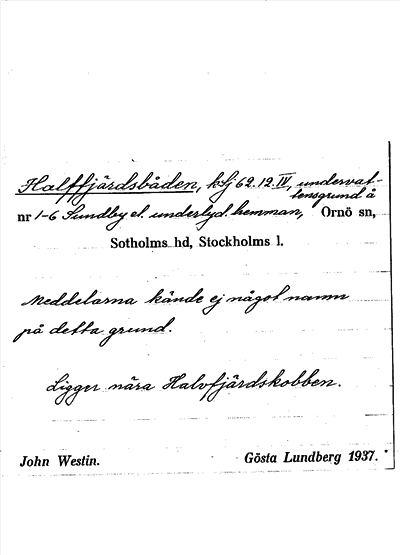 Halffjärdsbåden, kbj 62.12.IV, undervat-
tensgrund å
nr 1-6 Sundby el. underlyd. hemman, Ornö sn,
Sotholms hd, Stockholms l.
Meddelarna kände ej något namn
på detta grund.
Ligger nära Halvfjärdskobben.
John Westin. Gösta Lundberg 1937.